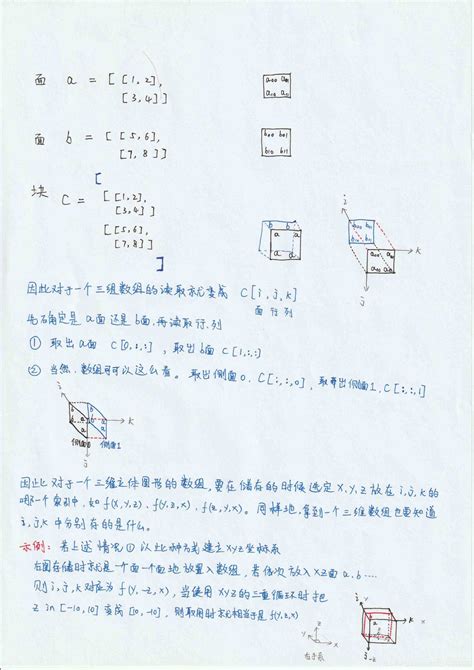 面 a = [ [1, 2],
[3, 4] ]
a00 a01
a10 a11
面 b = [ [5, 6],
[7, 8] ]
b00 b01
b10 b11
[
块 C = [ [1, 2],
[3, 4] ]
[ [5, 6],
[7, 8] ]
]
b b
a a
a a
i
b00 b01
b10 b11
a00 a01
a10 a11
k
j
因此对于一个三维数组的读取就变成 C[i, j, k]
面 行 列
先确定是 a面 还是 b面, 再读取行.列
① 取出 a面 C[0,:,:] , 取出 b面 C[1,:,:]
② 当然, 数组可以这么看。取出侧面0. C[:,:,0], 取出侧面1. C[:,:,1]
i
b b
b a a
a
k
侧面0 侧面1
j
因此对于一个三维立体图形的数组, 要在储存的时候选定 X,Y,Z 放在 i,j,k 的
哪一个索引中, 如 f(x,y,z)、f(y,z,x)、f(z,y,x)。同样地, 拿到一个三维数组也要知道
i,j,k 中分别存的是什么。
示例: 若上述情况① 以此种方式建立XYZ坐标系
右图存储时就是一个面一个面地放置入数组, 若依次放入 XZ面 a, b ....
则 i, j, k 对应为 f(Y,-Z,X), 当使用 XYZ 的三重循环时把
Z in [-10,10] 变成 [10,-10], 则取用时就相当于是 f(Y,Z,X)
Z
Y
X
右手系
i
b
a
X
j
-k